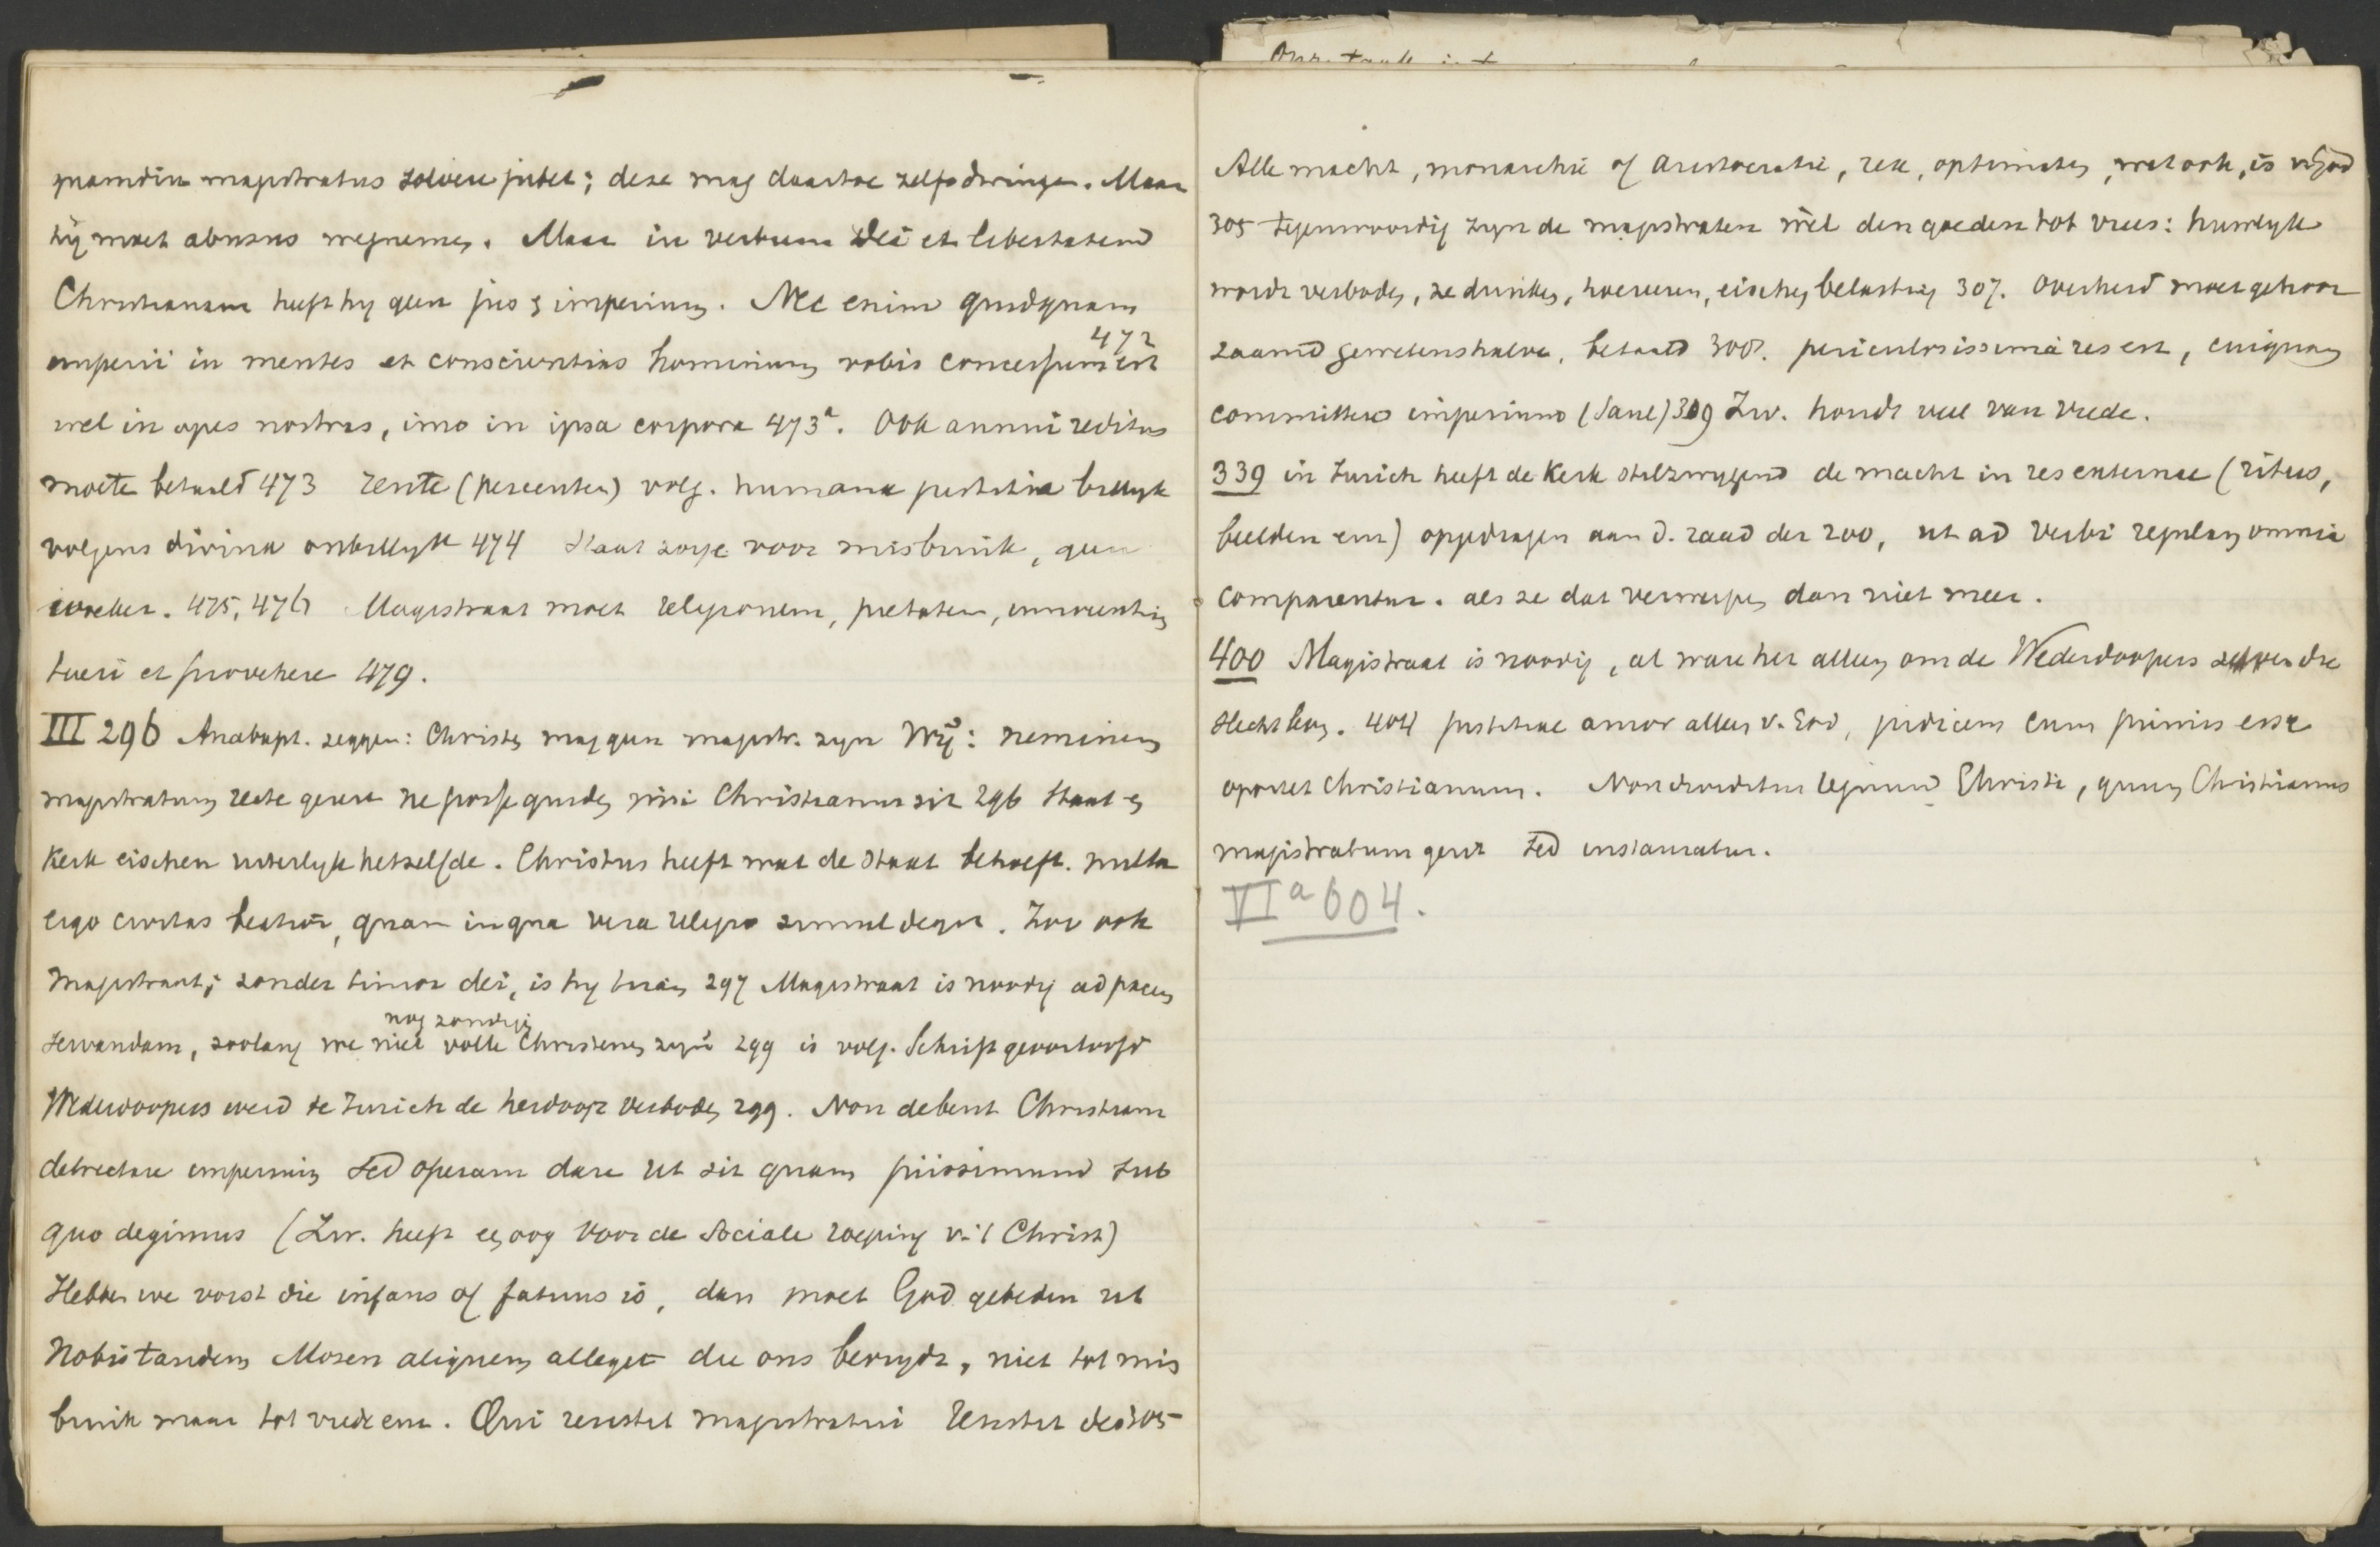 quamdiu magistratus solvere jubet; deze mag daartoe zelfs dwingen. Maar
hij moet abusus wegnemen. Maar in verbum Dei et libertatem
Christianam heeft hy geen jus & imperium. Nec enim quidquam
472
imperii in mentes et conscientias hominum vobis concessum est
vel in opes nostras, imo in ipsa corpora 473a. Ook annui reditus
moete betaald 473 rente (percenten) volg. humana justitia billyk
volgens divina onbillyk 474 Staat zorge voor misbruik, geen
woeker. 475, 476 Magistraat moet religionem, pietatem, innocentiam
tueri et provehere 479.
III 296 Anabapt. zeggen: Christen mag geen magistr. zyn Wij: neminem
magistratum recte gerere ne posse quidem nisi Christianus sit 296 Staat en
Kerk eischen uiterlyk hetzelfde. Christus heeft wat de Staat behoeft. nulla
ergo civitas beatior, quam in qua vera religio simul degit. Zoo ook
Magistraat; zonder timor dei, is hy tiran 297 Magistraat is noodig ad pacem
nog zondige
servandam, zoolang we niet volle Christenen zijn 299 is volg. Schrift geoorloofd
Wederdoopers werd te Zurich de herdoop verboden 299. Non debent Christiani
detrectare imperium sed operam dare ut sit quam piissimum sub
quo degimus (Zw. heeft een oog voor de Sociale roeping v. 't Christ)
Hebben we vorst die infans of fatuus is, dan moet God gebeden ut
nobis tandem Mosen aliquem alleget die ons bevrydt, niet tot mis
bruik maar tot vrede enz. Qui resistit magistratui resistit deo 305
Alle macht, monarchie of aristocratie, rex, optimates, wat ook, is v. God
305 Tegenwoordig zyn de magistraten wèl den goeden tot vrees: huwelyk
wordt verboden, ze drinken, hoereeren, eischen belasting 307. Overheid moet gehoor
zaamd gewetenshalve, betaald 308. periculosissima res est, cuiquam
committere imperium (Saul) 309 Zw. houdt veel van vrede.
339 in Zurich heeft de Kerk stilzwygend de macht in res externae (ritus,
beelden enz) opgedragen aan d. raad der 200, ut ad verbi regulam omnia
comparentur. als ze dat verwerpen dan niet meer.
400 Magistraat is noodig, al ware het alleen om de Wederdoopers die
slecht leven. 404 justitiae amor alleen v. God, judicem cum primis esse
oportet christianum. Non regnum Christi, quum Christianus
magistratum gerit sed instauratur.
VIa 604.